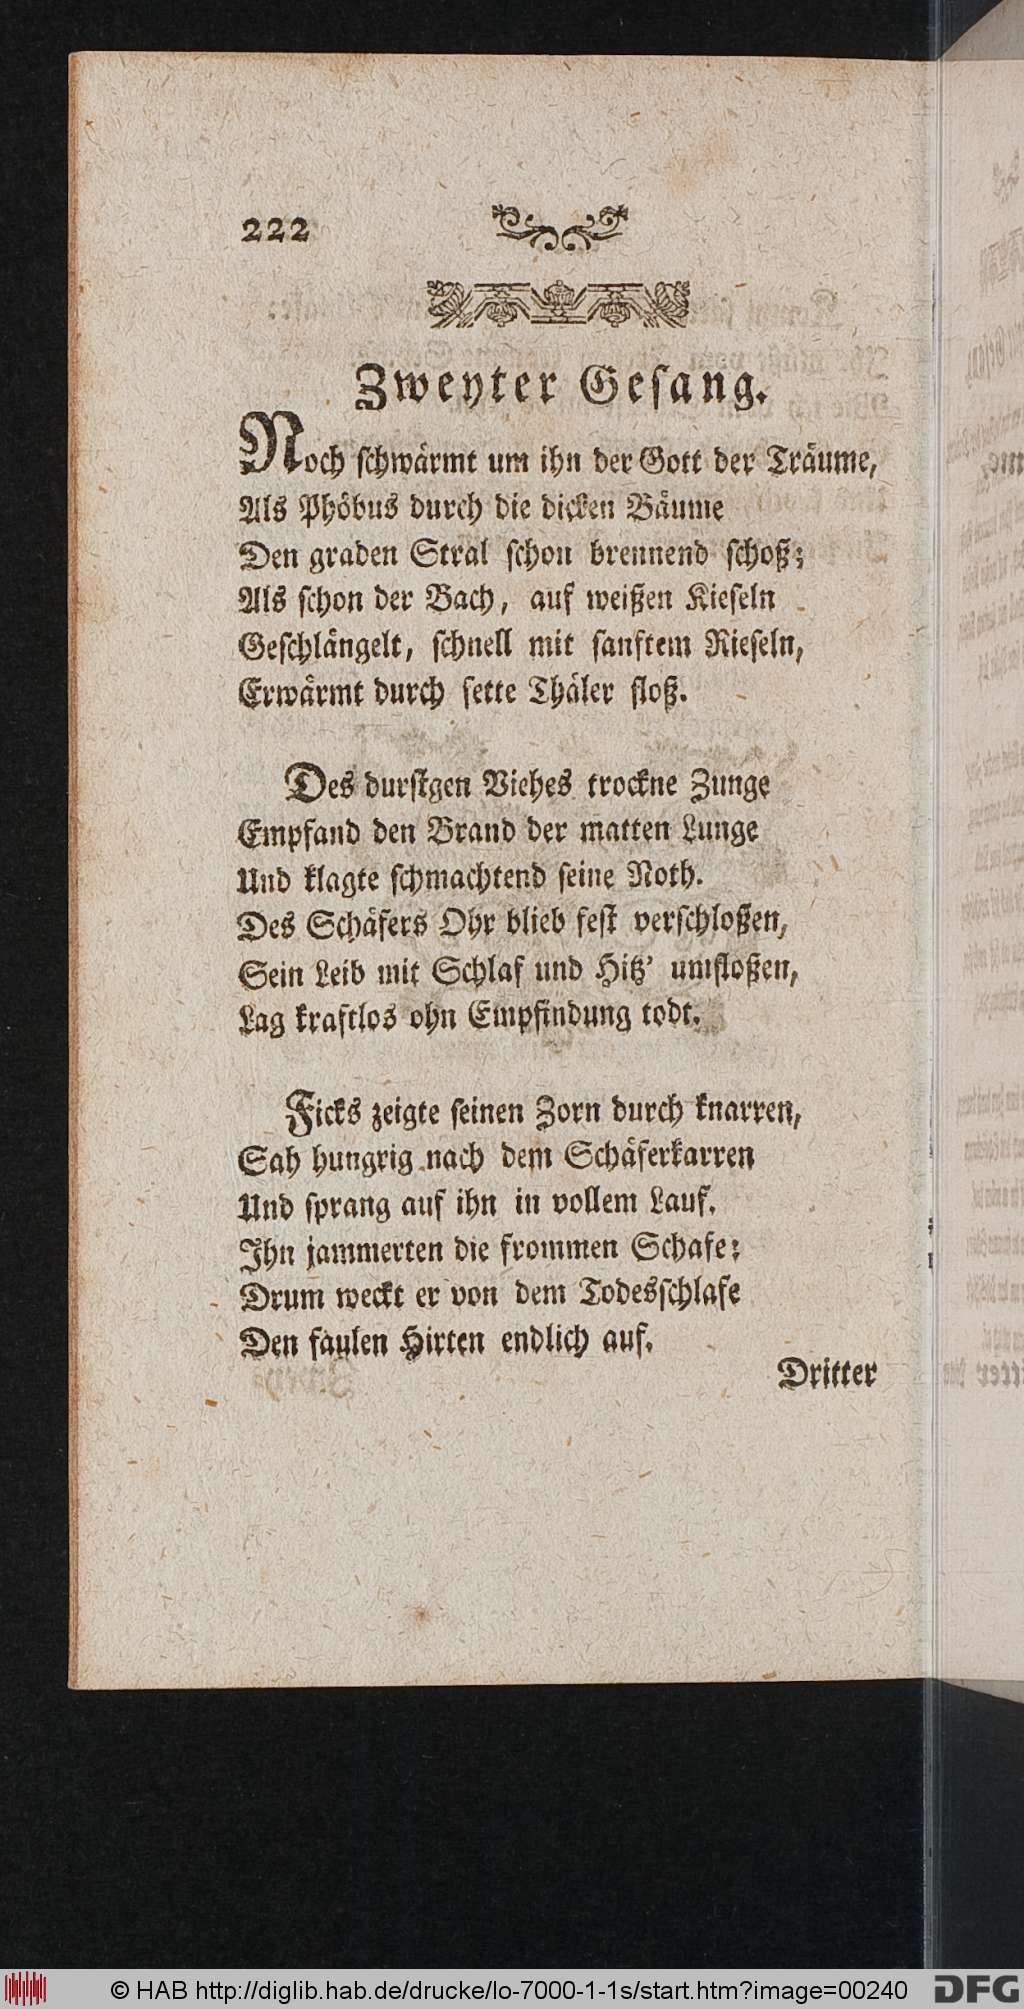 222
Zweyter Gesang.
Noch schwärmt um ihn der Gott der Träume,
Als Phöbus durch die dicken Bäume
Den graden Stral schon brennend schoß;
Als schon der Bach, auf weißen Kieseln
Geschlängelt, schnell mit sanftem Rieseln,
Erwärmt durch fette Thäler floß.
Des durstgen Viehes trockne Zunge
Empfand den Brand der matten Lunge
Und klagte schmachtend seine Noth.
Des Schäfers Ohr blieb fest verschloßen,
Sein Leib mit Schlaf und Hitz' umfloßen,
Lag kraftlos ohn Empfindung todt.
Ficks zeigte seinen Zorn durch knarren,
Sah hungrig nach dem Schäferkarren
Und sprang auf ihn in vollem Lauf.
Ihn jammerten die frommen Schafe;
Drum weckt er von dem Todesschlafe
Den faulen Hirten endlich auf.
Dritter
© HAB http://diglib.hab.de/drucke/lo-7000-1-1s/start.htm?image=00240
DFG